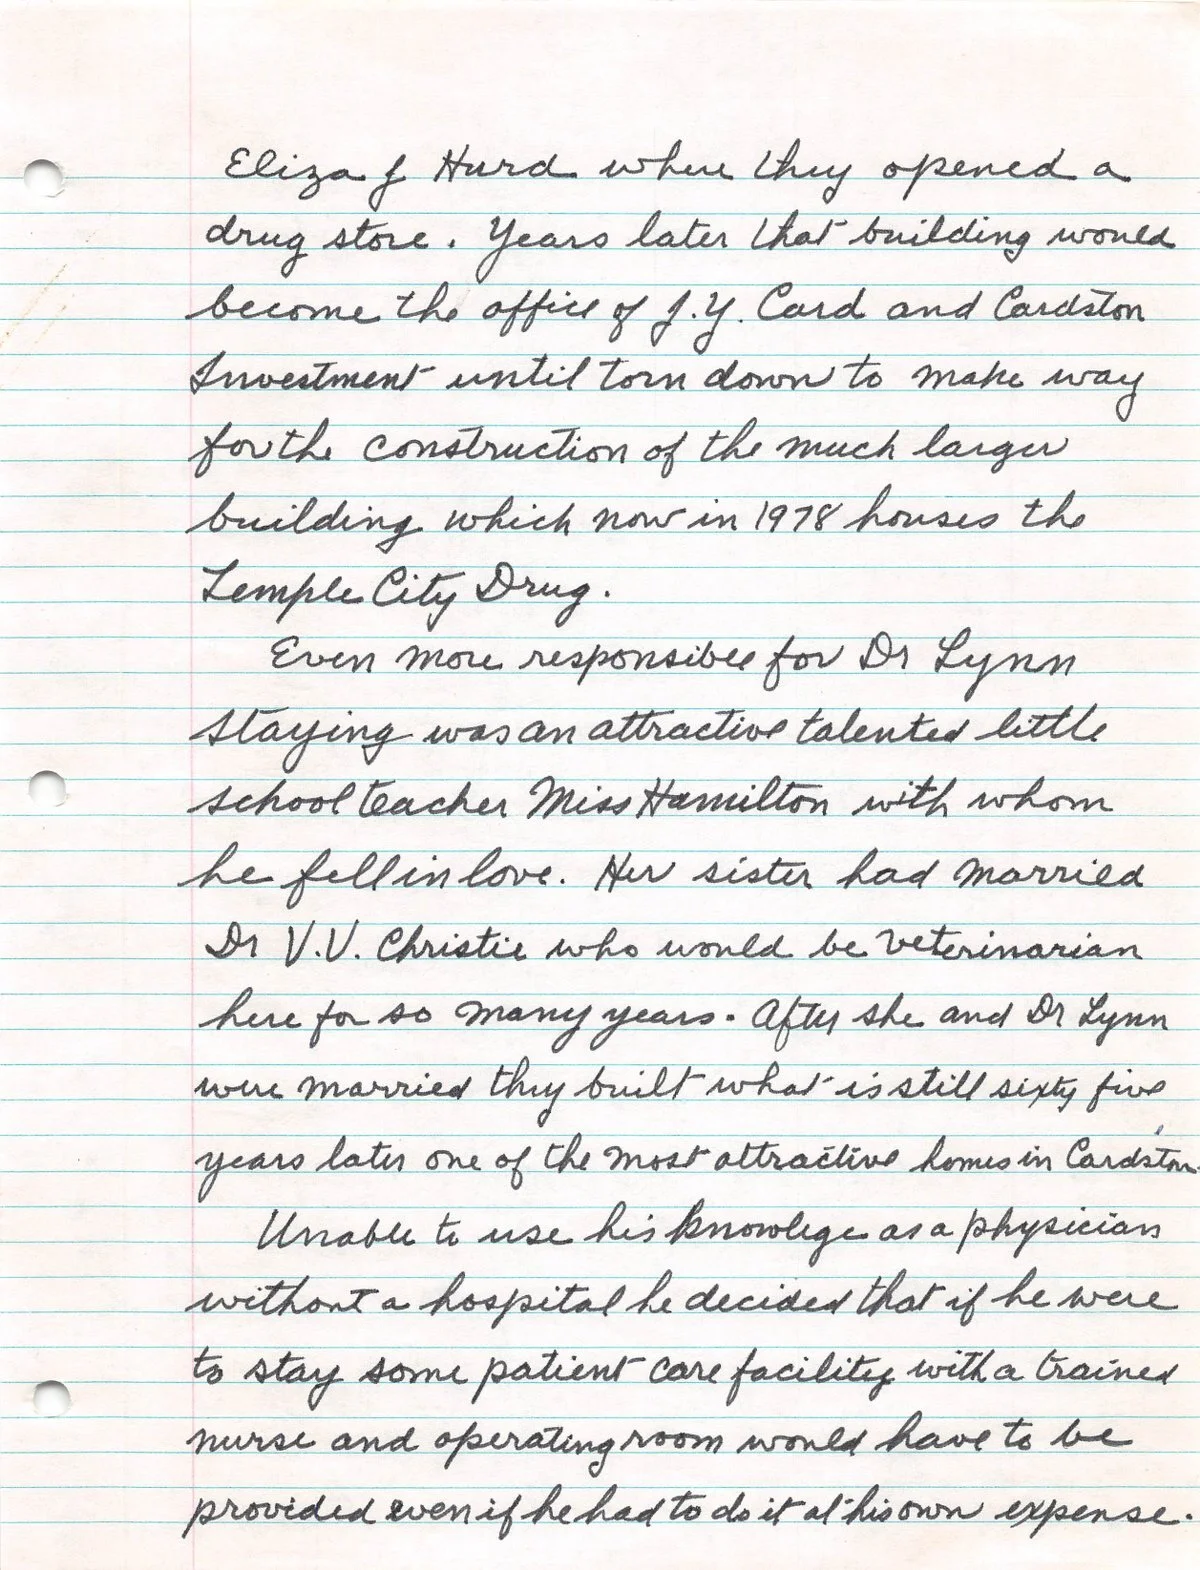 Eliza J Hurd where they opened a
drug store. Years later that building would
become the office of J.Y. Card and Cardston
Investment until torn down to make way
for the construction of the much larger
building which now in 1978 houses the
Temple City Drug.
Even more responsible for Dr Lynn
staying was an attractive talented little
school teacher Miss Hamilton with whom
he fell in love. Her sister had married
Dr V.V. Christie who would be veterinarian
here for so many years. After she and Dr Lynn
were married they built what is still sixty five
years later one of the most attractive homes in Cardston.
Unable to use his knowlege as a physician
without a hospital he decided that if he were
to stay some patient care facility with a trained
nurse and operating room would have to be
provided even if he had to do it at his own expense.